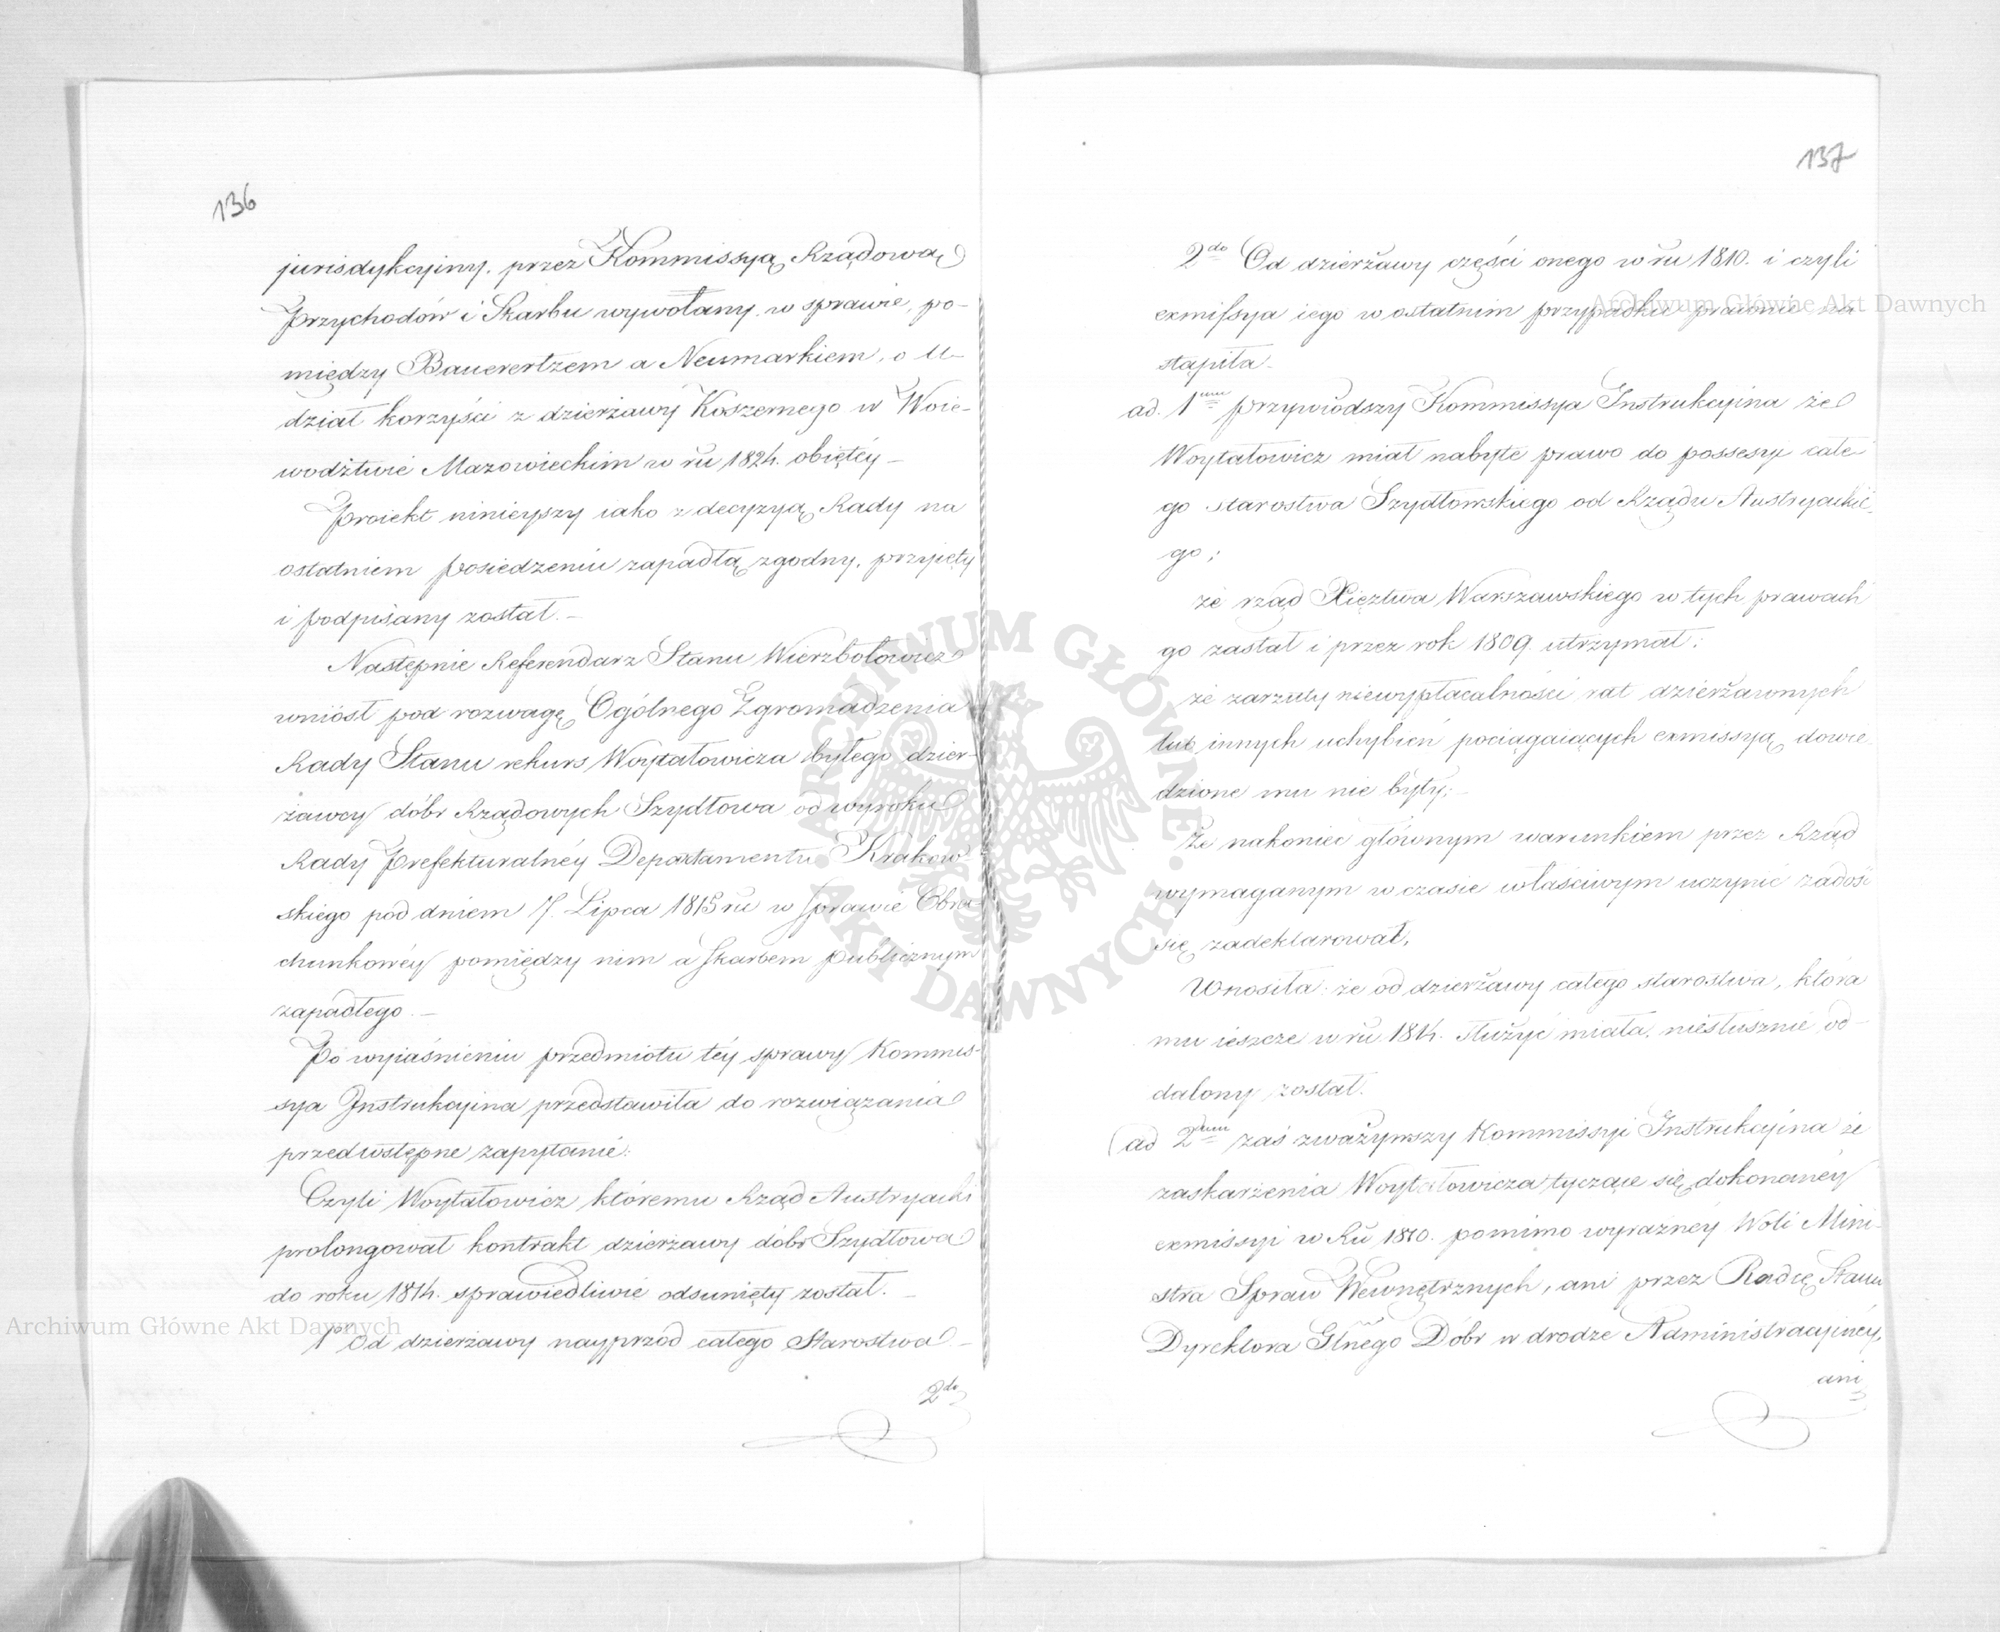 136
jurisdykcyiny, przez Kommissyą Rządową
Przychodów i Skarbu wywołany, w sprawie, po-
między Bauerertzem a Neumarkiem, o u-
dział korzyści z dzierżawy Koszernego w Woie-
wództwie Mazowieckim w ru 1824. obiętéy –
Proiekt ninieyszy iako z decyzyą Rady na
ostatniem posiedzeniu zapadłą zgodny, przyięty
i podpisany został. –
Następnie Referendarz Stanu Wierzbołowicz
wniósł pod rozwagę Ogólnego Zgromadzenia
Rady Stanu rekurs Woytałowicza byłego dzier-
żawcy dóbr Rządowych Szydłowa od wyroku
Rady Prefekturalnéy Departamentu Krakow-
skiego pod dniem 7. Lipca 1815 ru w sprawie Obra-
chunkowéy pomiędzy nim a Skarbem publicznym
zapadłego. –
Po wyiaśnieniu przedmiotu téy sprawy Kommis-
sya Instrukcyina przedstawiła do rozwiązania
przedwstępne zapytanie:
Czyli Woytałowicz któremu Rząd Austryacki
prolongował kontrakt dzierżawy dóbr Szydłowa
do roku 1814. sprawiedliwie odsunięty został. –
1º Od dzierżawy nayprzód całego Starostwa –
2do
137
2do Od dzierżawy części onego w ru 1810. i czyli
exmissya iego w ostatnim przypadku prawnie na
stąpiła.
ad. 1um przywiódszy Kommissya Instrukcyina że
Woytałowicz miał nabyte prawo do possesyi całe
go starostwa Szydłowskiego od Rządu Austryackie
go;
że rząd Xięztwa Warszawskiego w tych prawach
go zastał i przez rok 1809. utrzymał;
że zarzuty niewypłacalności rat dzierżawnych
lub innych uchybień pociągaiących exmissyą dowie
dzione mu nie były; –
że nakoniec głównym warunkiem przez Rząd
wymaganym w czasie właściwym uczynić zadość
się zadeklarował,
Wnosiła: że od dzierżawy całego starostwa, która
mu ieszcze w ru 1814. służyć miała, niesłusznie od-
dalony został.
ad 2dum zaś zważywszy Kommissyi Instrukcyina że
zaskarżenia Woytałowicza tyczące się dokonanéy
exmissyi w Ru 1810. pomimo wyraźnéy Woli Mini-
stra Spraw Wewnętrznych, ani przez Radcę Stanu
Dyrektora Głnego Dóbr w drodze Administracyinéy,
ani
Archiwum Główne Akt Dawnych
Archiwum Główne Akt Dawnych
ARCHIWUM GŁÓWNE
AKT DAWNYCH